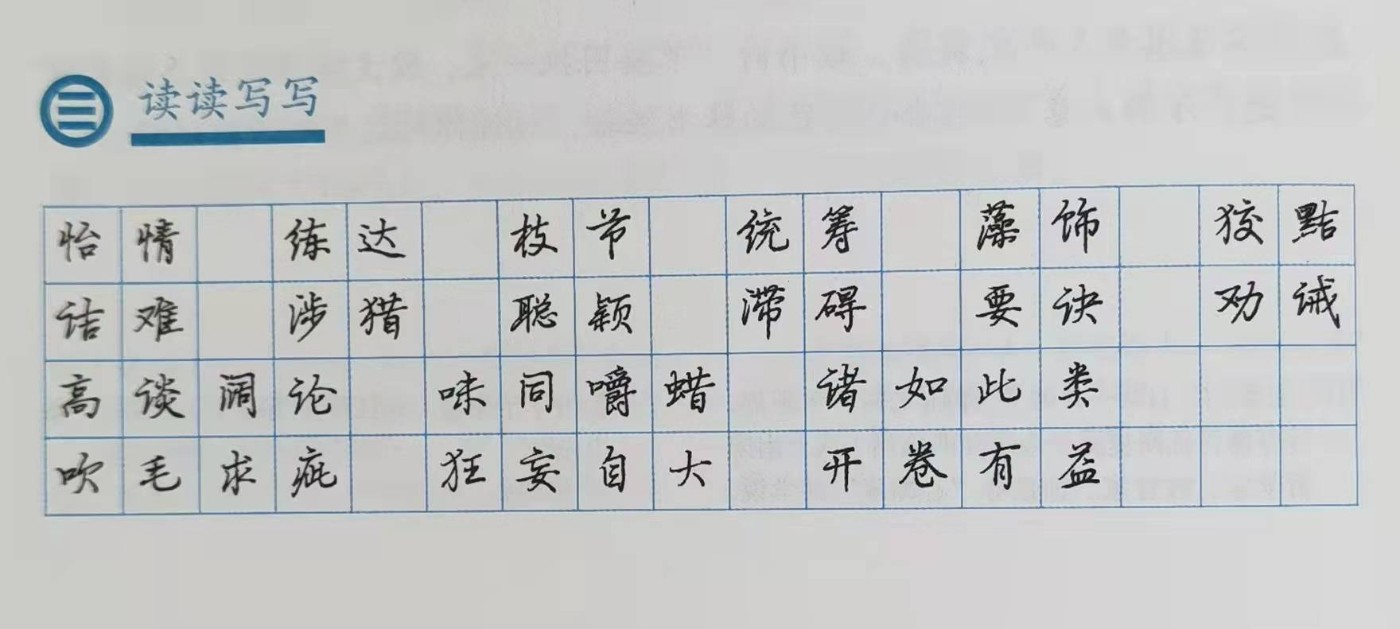 读读写写
怡情 练达 枝节 统筹 藻饰 狡黠
诘难 涉猎 聪颖 滞碍 要诀 劝诫
高谈阔论 味同嚼蜡 诸如此类
吹毛求疵 狂妄自大 开卷有益